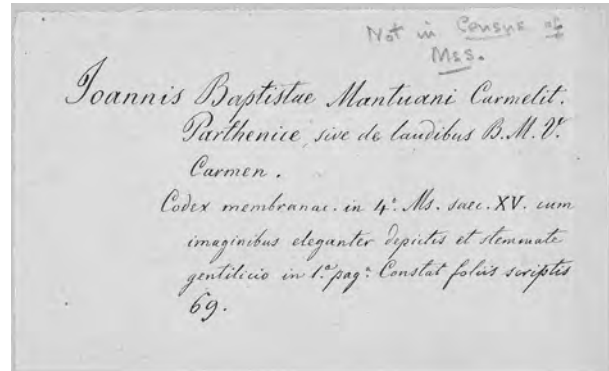 Not in Census of
Mss.
Joannis Baptistae Mantuani Carmelit.
Parthenice, sive de laudibus B. M. V.
Carmen.
Codex membranac. in 4.º Ms. saec. XV. cum
imaginibus eleganter depictis et stemmate
gentilicio in 1.ª pag.ª Constat foliis scriptis
69.